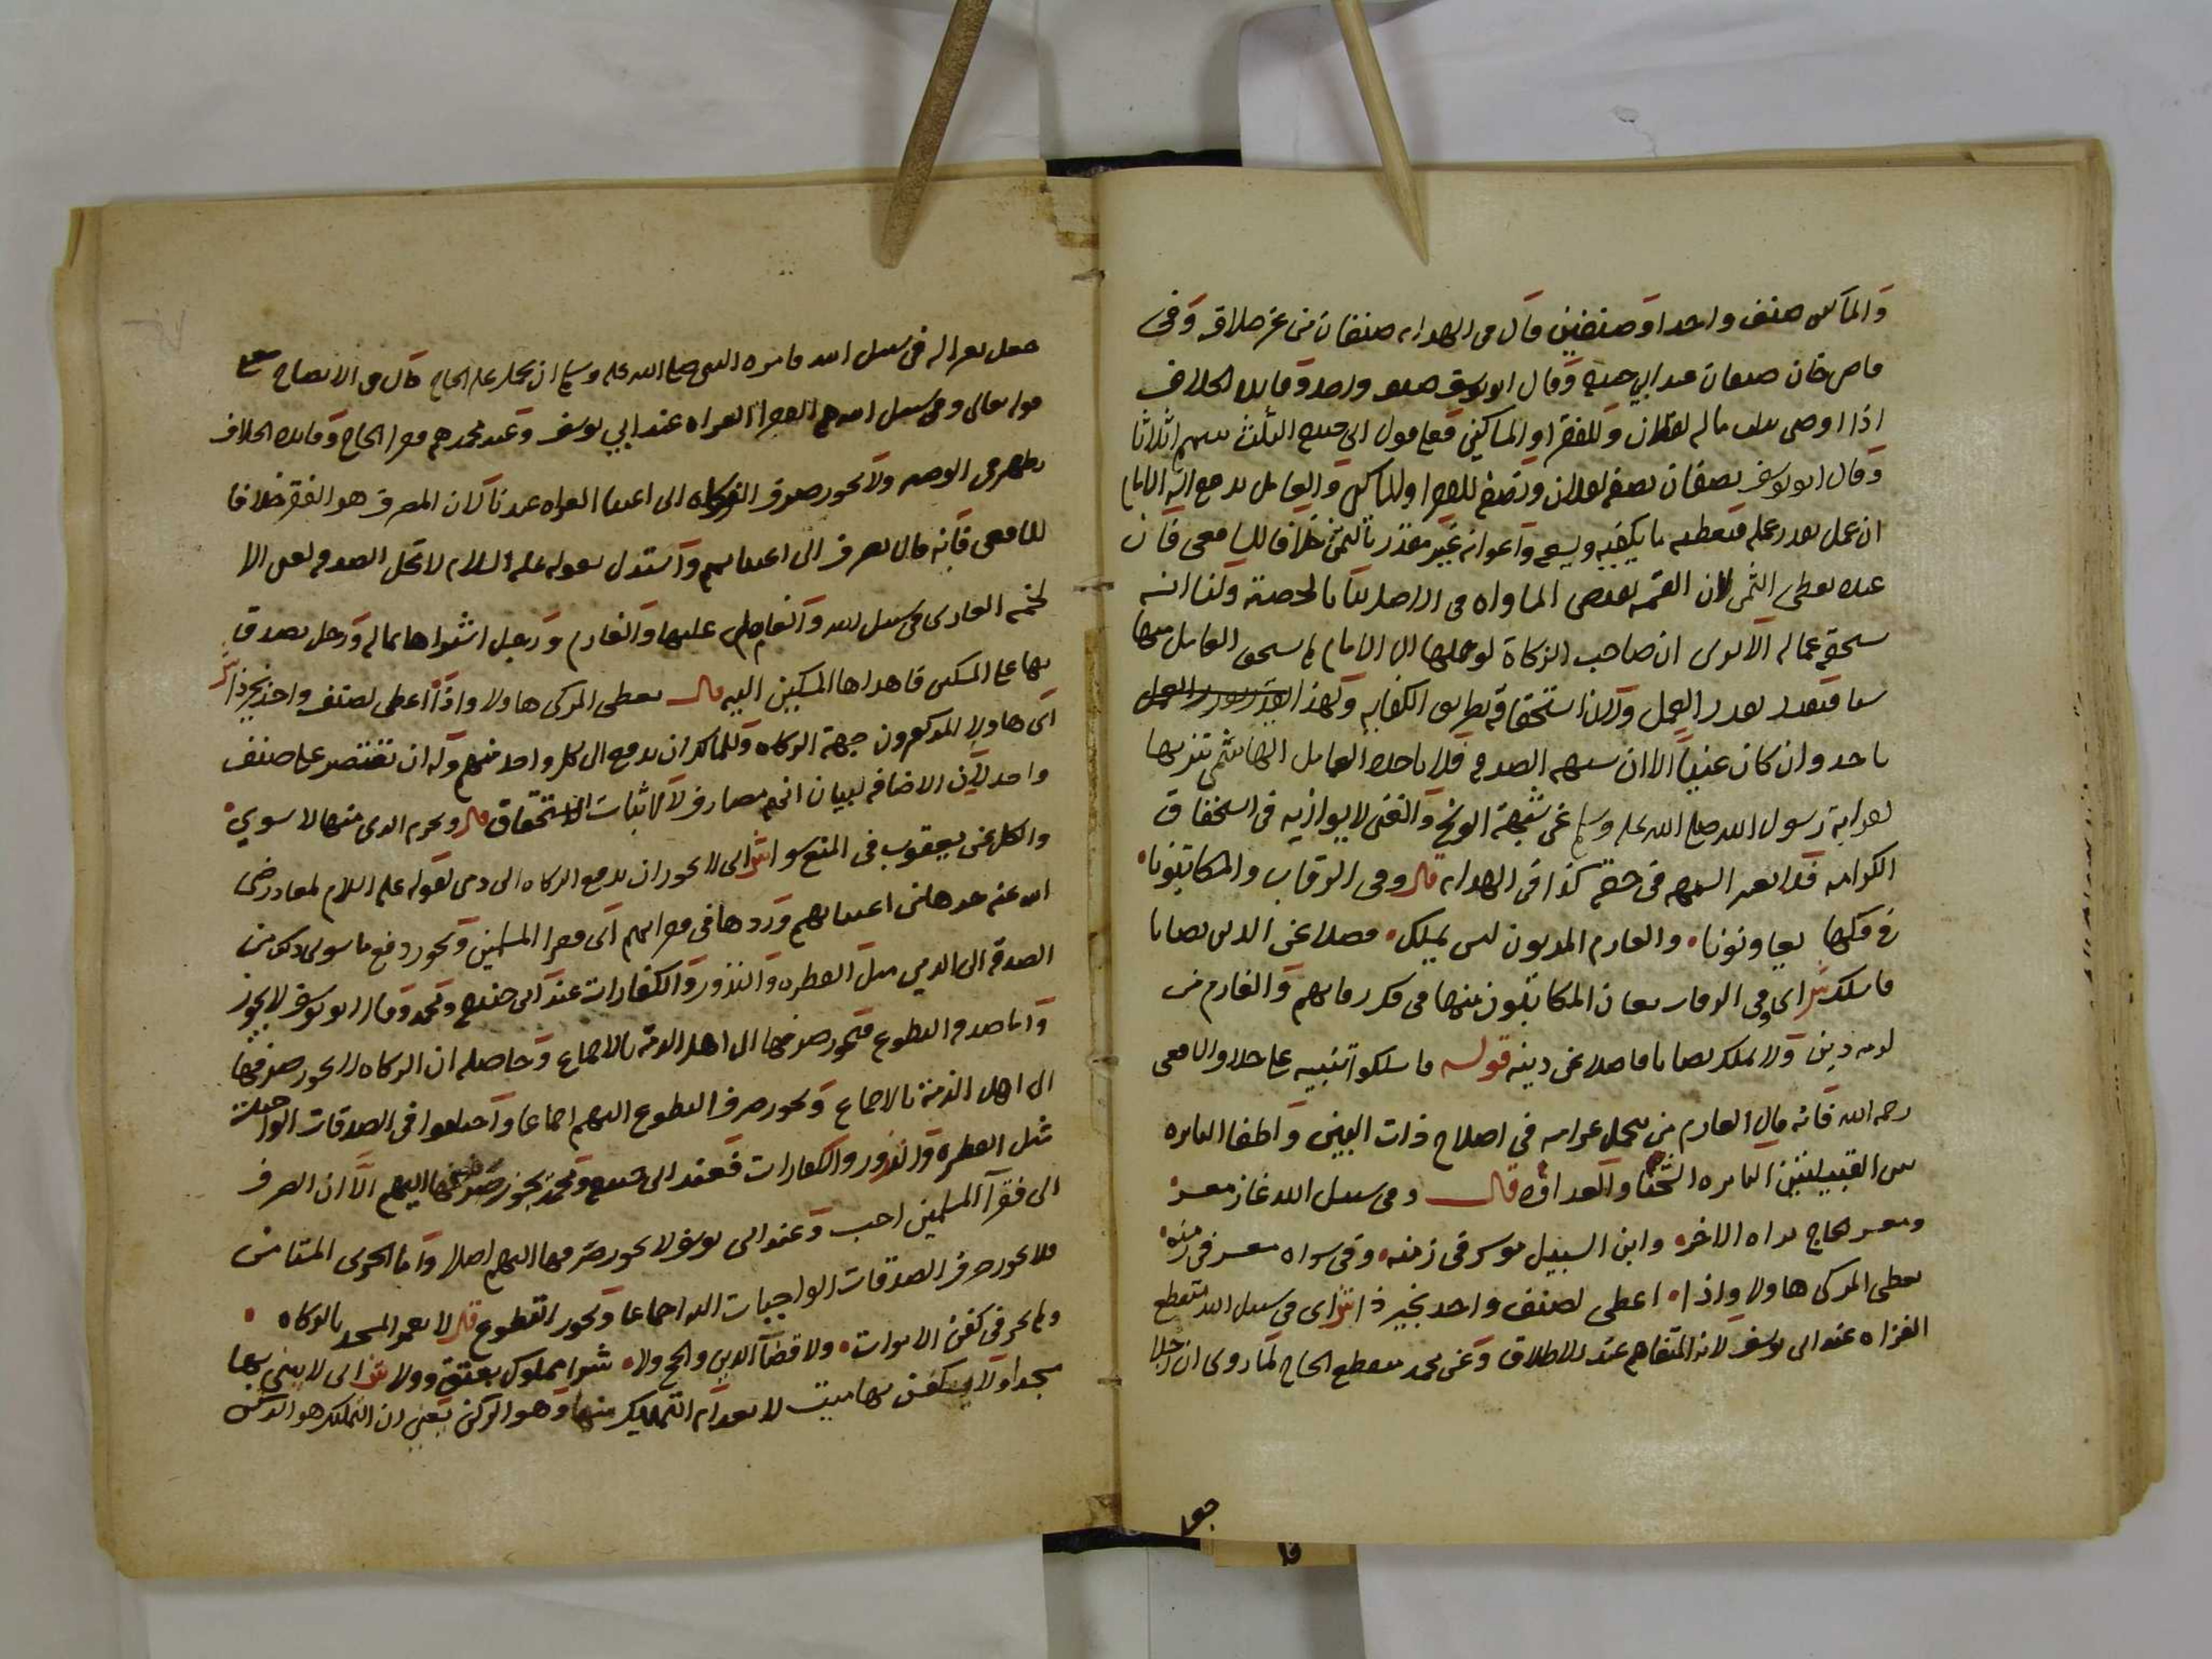 والمساكين صنف واحد او صنفين قال في الهدايه صنفان من غير خلاف وفي
قاضي خان صنفان عند ابي حنيفه وقال ابو يوسف صنف واحد وفائده الخلاف
اذا اوصى بثلث ماله لفلان وللفقرا والمساكين فعلى قول ابي حنيفه الثلث بينهم اثلاثا
وقال ابو يوسف نصفان نصفه لفلان ونصفه للفقرا والمساكين والعامل يدفع اليه الامام
ان عمل بقدر عمله فيعطيه ما يكفيه ويسعه واعوانه غير مقدر بالثمن خلافا للشافعي فان
عنده يعطى الثمن لان القسمه تقتضي المساواه في الاصل
يستحقه عماله الا ترى ان صاحب الزكاة لو حملها الى الامام لم يستحق العامل منها
شيا فيتقدر بقدر العمل ولان استحقاقه بطريق الكفايه ولهذا
ياخذ وان كان غنيا الا ان شبهه الصدقه فلا ياخذه العامل الهاشمي تنزيها
لقرابة رسول الله صلى الله عليه وسلم عن شبهة الوسخ والغني لا يوازيه في استحقاق
الكرامه فلم تعتبر الشبهه في حقه كذا في الهدايه قال وفي الرقاب والمكاتبونا
في فكها يعاونونا والغارم المديون ليس يملك فضلا عن الدين نصابا
ما سلك ش اي وفي الرقاب يعان المكاتبون منها في فك رقابهم والغارم من
لزمه دين ولا يملك نصابا فاضلا عن دينه قوله ما سلكوا تنبيه على خلاف الشافعي
رحمه الله فانه قال الغارم من تحمل غرامه في اصلاح ذات البين واطفا النايره
بين القبيلتين النايره الشحنا والعداوه قال وفي سبيل الله غاز معسر
ومعسر الحاج براه الاخر وابن السبيل موسر في زمنه وفي سواه معسر في زمنه
يعطي المزكي هاولا واذا اعطى لصنف واحد يخير ذا ش اي في سبيل الله منقطع
الغزاه عند ابي يوسف لانه المتفاهم عند الاطلاق وعن محمد منقطع الحاج لما روي ان رجلا
جعل
جعل بعيرا له في سبيل الله فامره النبي صلى الله عليه وسلم ان يحمل عليه الحاج قال في الايضاح معنى
قوله تعالى وفي سبيل الله هم الفقرا الغزاه عند ابي يوسف وعند محمد هم فقرا الحاج وفائده الخلاف
تظهر في الوصيه ولا يجوز صرف الزكاه الى اغنيا الغزاه عندنا لان المصرف هو الفقر خلافا
للشافعي فانه قال يصرف الى اغنيائهم واستدل بقوله عليه السلام لا تحل الصدقه لغني الا
لخمسه الغازي في سبيل الله والعامل عليها والغارم ورجل اشتراها بماله ورجل تصدق
بها على المسكين فاهداها المسكين اليه قال يعطي المزكي هاولا واذا اعطى لصنف واحد يخير ذا ش
اي هاولا المذكورون جهة الزكاه وللمالك ان يدفع الى كل واحد منهم وله ان يقتصر على صنف
واحد لان الاضافه لبيان انهم مصارف لا لاثبات الاستحقاق قال ويحرم الذمي منها لا سوي
والكل عن يعقوب في المنع سوا ش اي لا يجوز ان يدفع الزكاه الى ذمي لقوله عليه السلام لمعاذ رضي
الله عنه خذها من اغنيائهم وردها في فقرائهم اي فقرا المسلمين ويجوز دفع ما سوى ذلك من
الصدقه الى الذمي مثل الفطره والنذور والكفارات عند ابي حنيفه ومحمد وقال ابو يوسف لا يجوز
واما صدقه التطوع فيجوز صرفها الى اهل الذمه بالاجماع وحاصله ان الزكاه لا يجوز صرفها
الى اهل الذمة بالاجماع ويجوز صرف التطوع اليهم اجماعا واختلفوا في الصدقات الواجبات
مثل الفطره والنذور والكفارات فعند ابي حنيفه ومحمد يجوز صرفها اليهم الا ان الصرف
الى فقرآ المسلمين احب وعند ابي يوسف لا يجوز صرفها اليهم اصلا واما الحربي المستامن
فلا يجوز صرف الصدقات الواجبات اليه اجماعا ويجوز التطوع قال لا يعمر المسجد بالزكاه
ولم يجز في كفن الاموات ولا قضآ الدين والحج ولا شرا مملوك يعتق وولا ش اي لا يبنى بها
مسجدا ولا يكفن بها ميت لانعدام التمليك منها وهو الركن يعني ان التمليك هو الركن